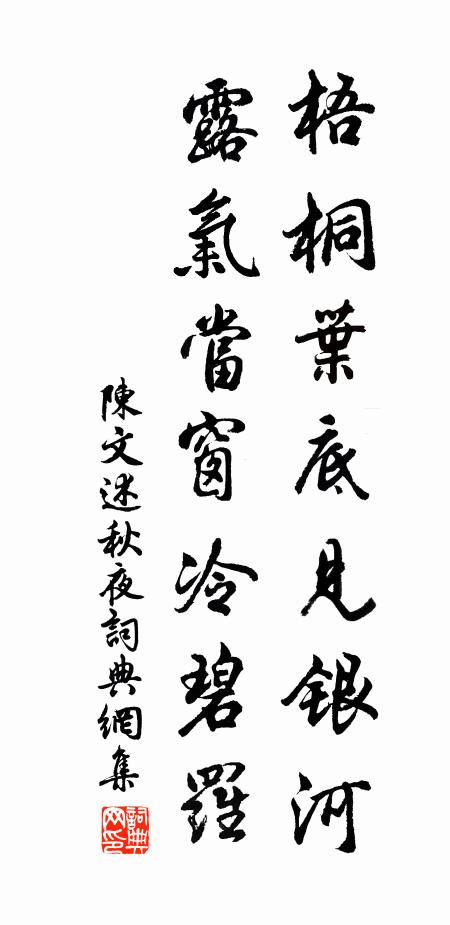 梧桐葉底見銀河
露氣當窗冷碧羅
陳文述秋夜詞典網集
詞典网印